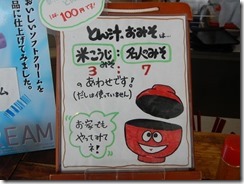 は100円です!
おいしいソフトクリームを
品に仕上げてみました。
EAM
とん汁.おみそは
米こうじみそ:名人みそ
3 : 7
のあわせです。
(だしは使っていません)
お家でも
やってみて
ネ!